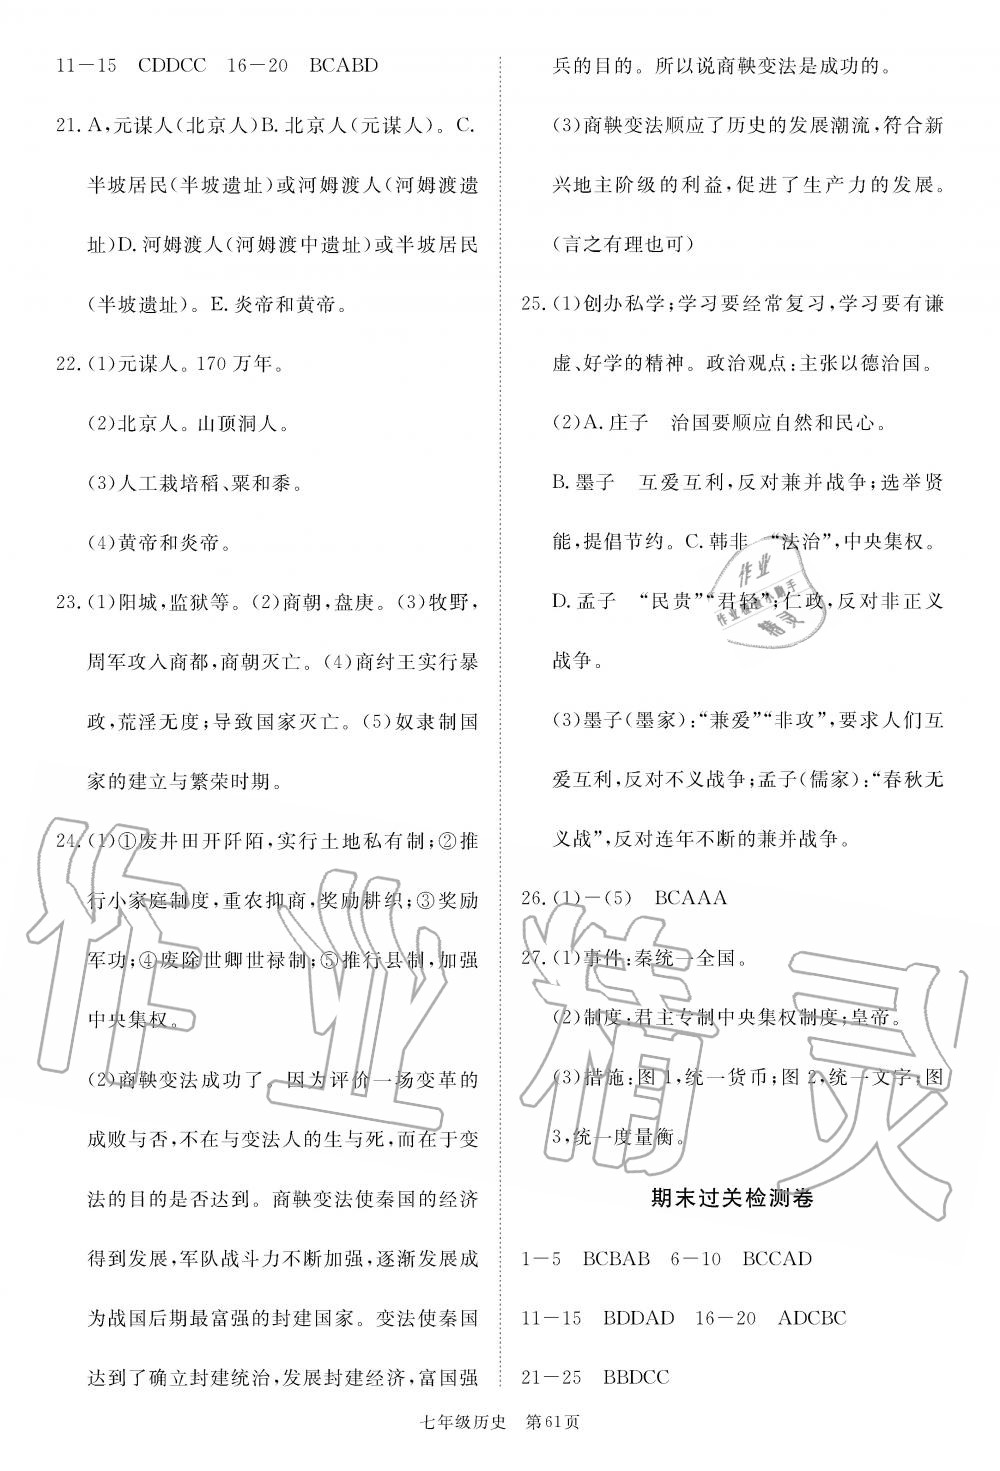 11－15　CDDCC　16－20　BCABD
21. A,元谋人(北京人)B. 北京人(元谋人)。C.
半坡居民(半坡遗址)或河姆渡人(河姆渡遗
址)D. 河姆渡人(河姆渡中遗址)或半坡居民
(半坡遗址)。E. 炎帝和黄帝。
22. (1)元谋人。170 万年。
(2)北京人。山顶洞人。
(3)人工栽培稻、粟和黍。
(4)黄帝和炎帝。
23. (1)阳城,监狱等。(2)商朝,盘庚。(3)牧野,
周军攻入商都,商朝灭亡。(4)商纣王实行暴
政,荒淫无度;导致国家灭亡。(5)奴隶制国
家的建立与繁荣时期。
24. (1)①废井田开阡陌,实行土地私有制;②推
行小家庭制度,重农抑商,奖励耕织;③奖励
军功;④废除世卿世禄制;⑤推行县制,加强
中央集权。
(2)商鞅变法成功了。因为评价一场变革的
成败与否,不在与变法人的生与死,而在于变
法的目的是否达到。商鞅变法使秦国的经济
得到发展,军队战斗力不断加强,逐渐发展成
为战国后期最富强的封建国家。变法使秦国
达到了确立封建统治,发展封建经济,富国强
兵的目的。所以说商鞅变法是成功的。
(3)商鞅变法顺应了历史的发展潮流,符合新
兴地主阶级的利益,促进了生产力的发展。
(言之有理也可)
25. (1)创办私学;学习要经常复习,学习要有谦
虚、好学的精神。政治观点:主张以德治国。
(2)A. 庄子　治国要顺应自然和民心。
B. 墨子　互爱互利,反对兼并战争;选举贤
能,提倡节约。C. 韩非　“法治”,中央集权。
D. 孟子　“民贵”“君轻”;仁政,反对非正义
战争。
(3)墨子(墨家):“兼爱”“非攻”,要求人们互
爱互利,反对不义战争;孟子(儒家):“春秋无
义战”,反对连年不断的兼并战争。
26. (1)－(5)　BCAAA
27. (1)事件:秦统一全国。
(2)制度:君主专制中央集权制度;皇帝。
(3)措施:图 1,统一货币;图 2,统一文字;图
3,统一度量衡。
期末过关检测卷
1－5　BCBAB　6－10　BCCAD
11－15　BDDAD　16－20　ADCBC
21－25　BBDCC
七年级历史　第61页
作业精灵
作业
精灵